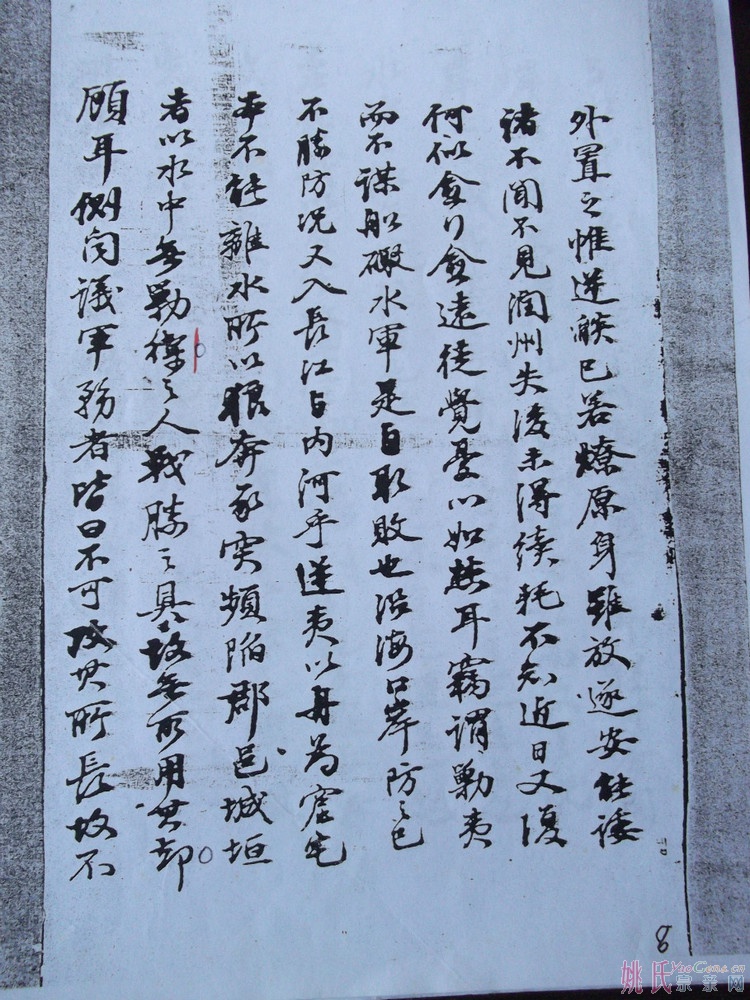 外置之惟逆燄已若燎原身雖放逐安能諉
諸不聞不見潤州失後未得續耗不知近日又復
何似愈行愈遠徒覺憂心如擣耳竊謂勦夷
而不謀船礟水軍是自取敗也沿海口岸防之已
不勝防況又入長江與內河乎逆夷以舟為窟宅
本不能離水所以狼奔豕突頻陷郡邑城垣
者以水中無勦禦之人戰勝之具故無所用其却
顧耳側聞議軍務者皆曰不可攻其所長故不
8
姚氏宗亲网
YaoGens.cn